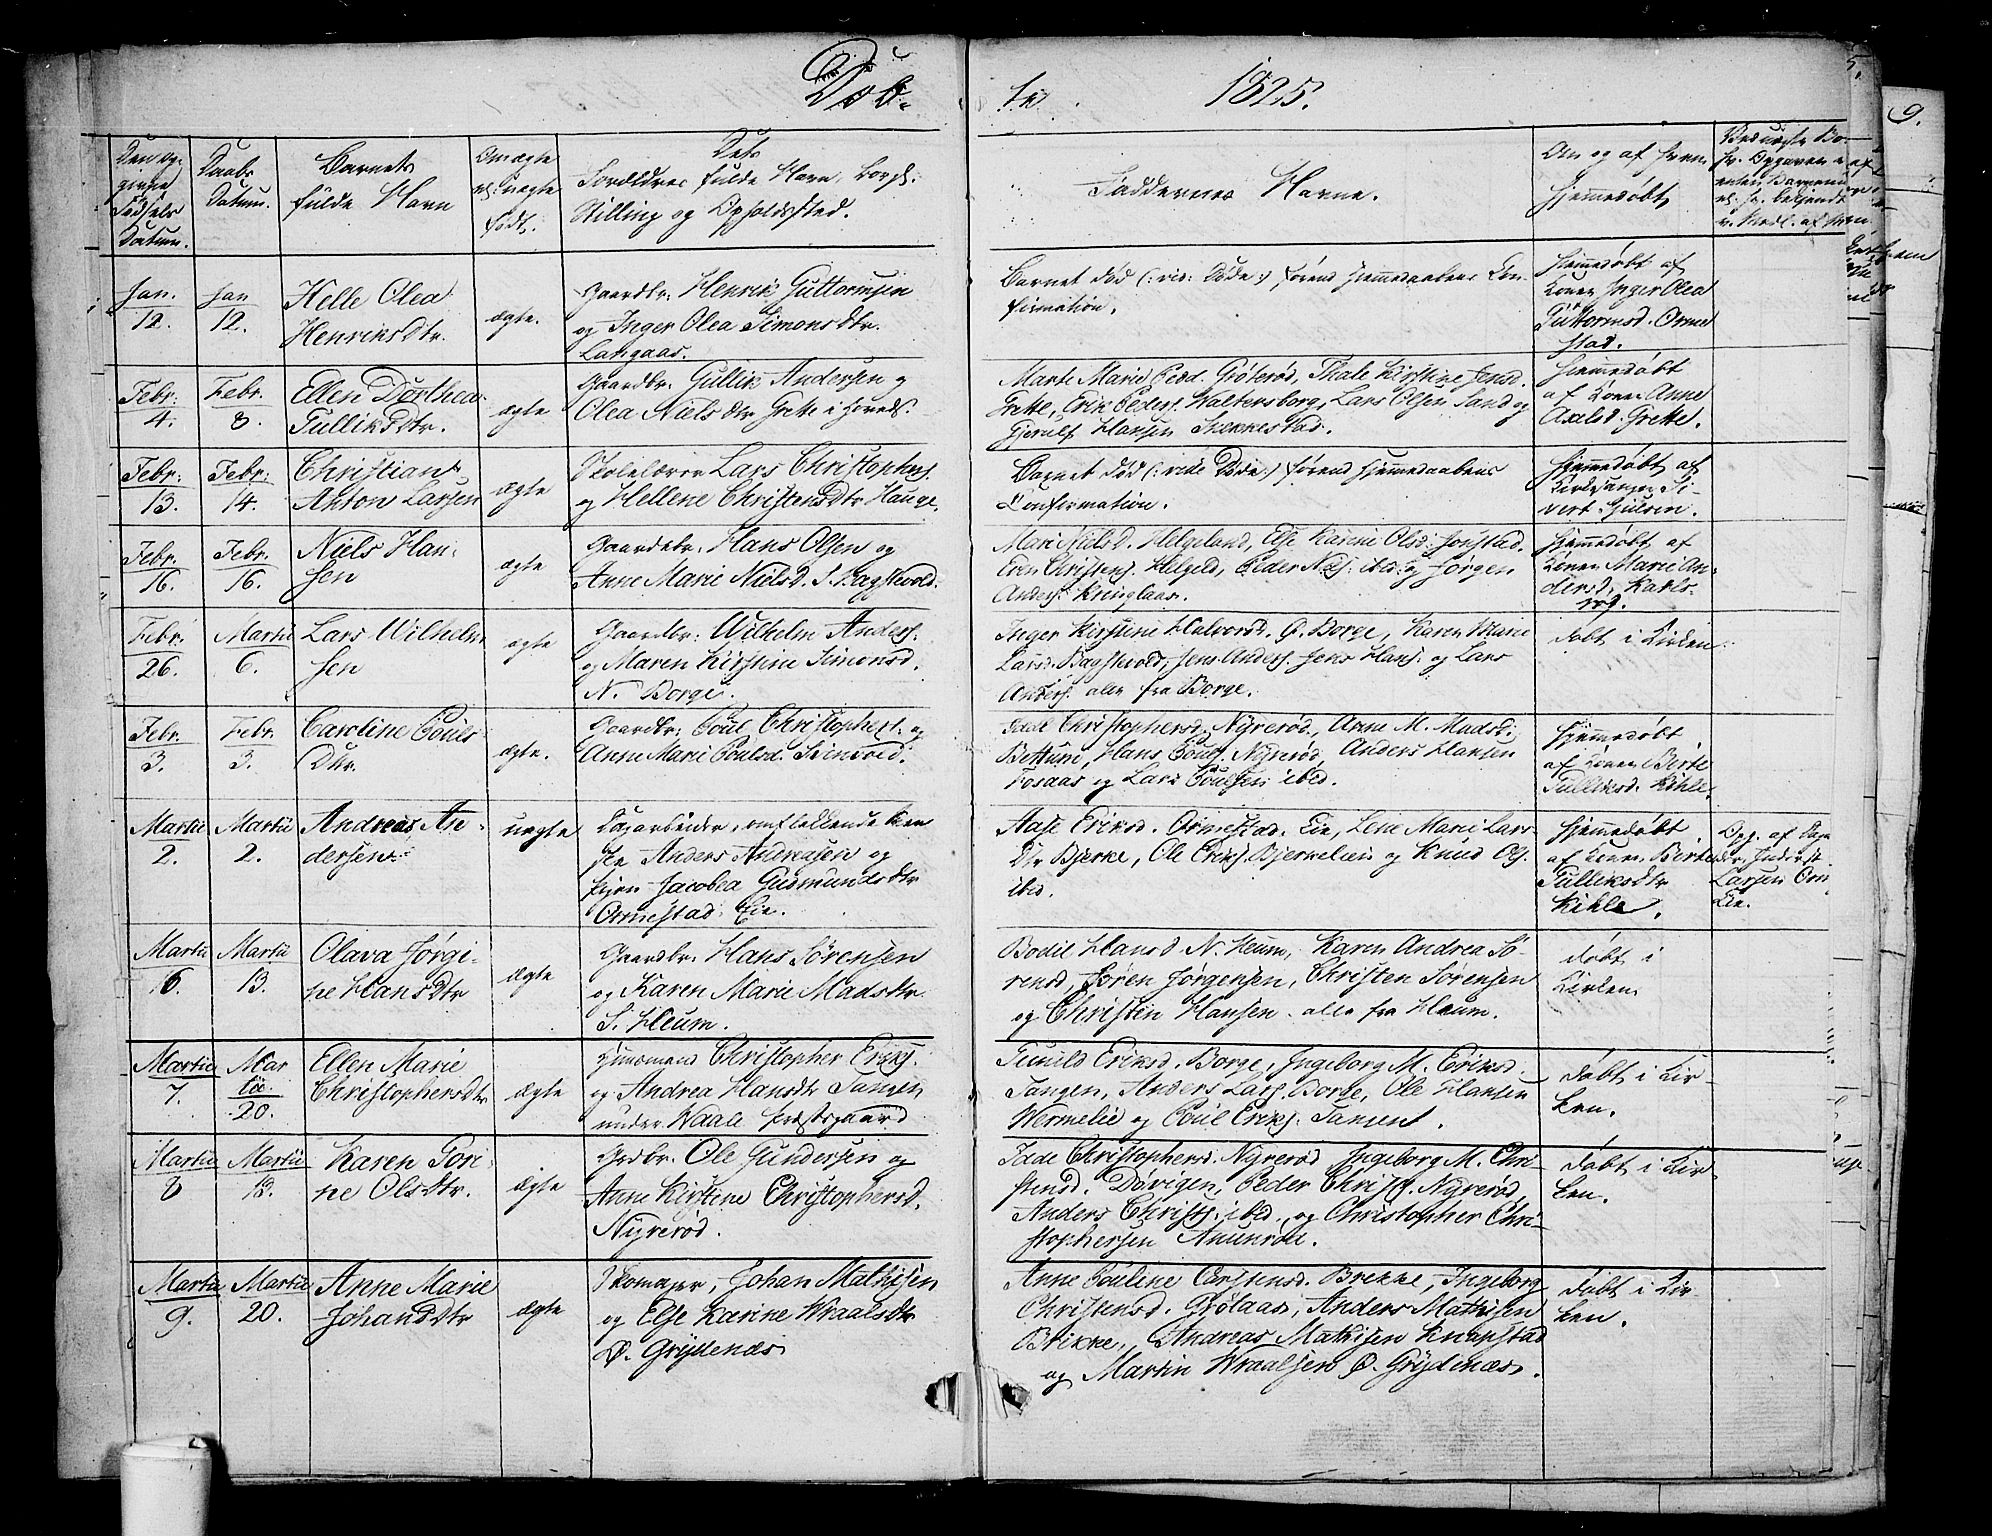 Døb-
te
1825.
9.
Den op-
givne
Fødsels
Datum.
Daabs
Datum.
Barnets
fulde Navn
Om ægte
el. uægte
født.
Dets
Forældres fulde Navn, Borgl.
Stilling og Opholdssted.
Faddernes Navne.
Om og af hvem
hjemmedøbt
Jan.
12.
Jan
12.
Helle Olea
Henriksdtr.
ægte.
Gaardbr: Henrik Guttormsen
og Inger Olea Simonsdtr.
Langaas.
Barnet død (: vid: Døde :) førend Hjemmedaabens Con-
firmation.
Hjemmedøbt af
Konen Inger Olea
Guttormsd. Orme
stad.
Febr.
4.
Febr.
8.
Ellen Dorthea
Gulliksdtr.
ægte
Gaardbr: Gullik Andersen og
Olea Nielsdtr Grette i Hoveds.
Marte Marie Pedd. Grøterød, Thale Kirstine Jensd.
Grette, Erik Peders. Waltersborg, Lars Olsen Sand og
Gjerulf Hansen Stokkestad.
Hjemmedøbt
af Konen Anne
Axelsd. Grette.
Febr:
13.
Febr:
14.
Christian
Anton Larsen
ægte
Skolelærer Lars Christophers.
og Hellene Christensdtr Hauge.
Barnet død (: vide Døde :) førend Hjemmedaabens
Confirmation.
Hjemmedøbt af
Kirkesanger Si-
vert Gulsen.
Febr.
16.
Febr.
16.
Niels Han-
sen
ægte
Gaardbr: Hans Olsen og
Anne Marie Nielsd. S. Bagstevold.
Mari Nielsd. Helgeland, Else Karine Olsd. Jonstad.
Even Christens. Helgeld, Peder Niels. ibid. og Jørgen
Anders. Kringlaas.
Hjemmedøbt af
Konen Marie An-
dersd. Karls-
rød.
Febr.
26.
Martii
6.
Lars Wilhelm
sen
ægte
Gaardbr: Wilhelm Anders.
og Maren Kirstine Simonsd.
N. Borge.
Inger Kirstine Halvorsd. Ø. Borge, Karen Marie
Larsd. Bagstevold, Jens Anders. Jens Hans. og Lars
Anders. alle fra Borge.
døbt i Kirken
Febr.
3.
Febr.
3.
Caroline Pouls
Dtr.
ægte.
Gaardbr. Poul Christophers. og
Anne Marie Poulsd. Svinevold.
Idde Christophersd. Nyrerød, Anne M. Madsd.
Bettum, Hans Pouls. Nyrerød, Anders Hansen
Fosaas og Lars Poulsen ibid.
Hjemmedøbt
af Konen Birte
Gulliksd. Kihle.
Martii
2.
Martii
2.
Andreas An-
dersen
uægte
Dagarbeider, omflakkende
Anders Andreasen og
Pigen Jacobea Gudmundsdtr
Ormestad Eie.
Aase Eriksd. Ormestad Eie, Lene Marie Lars-
Dtr Bjerke, Ole Eriks. Bjerkelien og Knud Ols.
ibid.
Hjemmedøbt
af Konen Birte
Gulliksdtr
Kihle.
Opg. af
Larsen
Eie.
Martii
6.
Martii
13.
Olava Jørgi-
ne Hansdtr
ægte
Gaardbr. Hans Sørensen
og Karen Marie Madsdtr
S. Heum.
Bodil Hansd N. Heum, Karen Andrea Sø-
rensd, Søren Jørgensen, Christen Sørensen
og Christen Hansen. alle fra Heum.
døbt i
Kirken
Martii
7.
Mar
tii
20.
Ellen Marie
Christophersdtr
ægte
Huusmand Christopher Eriks.
og Andrea Hansdtr Tangen
under Waale Præstegaard
Gunild Eriksd. Borge, Ingeborg M. Eriksd.
Tangen, Anders Lars. Borge, Ole Hansen
Wermelie og Poul Eriks. Tangen.
døbt i Kir-
ken.
Martii
8
Martii
13.
Karen Tori-
ne Olsdtr.
ægte
Grdbr. Ole Gundersen og
Anne Kirstine Christophersd.
Nyrerød.
Idde Christophersd. Nyrerød Ingeborg M. Chri-
stensd. Døvigen, Peder Christ. Nyrerød,
Anders Christ. ibid. og Christopher Chri-
stophersen Anunrød.
døbt i Kir
ken.
Martii
9.
Martii
20.
Anne Marie
Johansdtr
ægte
Skomager, Johan Mathisen
og Else Karine Wraalsdtr
Ø. Grydenæs
Anne Pouline Carstensd. Brekke, Ingeborg
Christensd. Grølaas, Anders Mathisen
Brekke, Andreas Mathisen Knapstad
og Martin Wraalsen Ø. Grydenæs.
døbt i Kir-
ken.